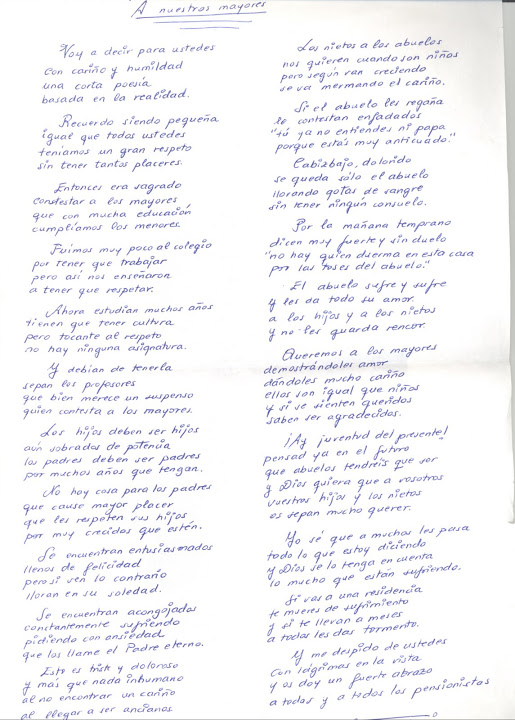 A nuestros mayores
Voy a decir para ustedes
con cariño y humildad
una corta poesía
basada en la realidad.
Recuerdo siendo pequeña
igual que todos ustedes
teníamos un gran respeto
sin tener tantos placeres.
Entonces era sagrado
contestar a los mayores
que con mucha educación
cumplíamos los menores.
Fuimos muy poco al colegio
por tener que trabajar
pero así nos enseñaron
a tener que respetar.
Ahora estudian muchos años
tienen que tener cultura
pero tocante al respeto
no hay ninguna asignatura.
Y debían de tenerla
sepan los profesores
que bien merece un suspenso
quien contesta a los mayores.
Los hijos deben ser hijos
aún sobrados de potencia
los padres deben ser padres
por muchos años que tengan.
No hay cosa para los padres
que cause mayor placer
que les respeten sus hijos
por muy crecidos que estén.
Se encuentran entusiasmados
llenos de felicidad
pero si ven lo contrario
lloran en su soledad.
Se encuentran acongojados
constantemente sufriendo
pidiendo con ansiedad
que los llame el Padre eterno.
Esto es triste y doloroso
y más que nada inhumano
al no encontrar un cariño
al llegar a ser ancianos.
Los nietos a los abuelos
nos quieren cuando son niños
pero según van creciendo
se va mermando el cariño.
Si el abuelo les regaña
le contestan enfadados
"tú ya no entiendes ni papa
porque estás muy anticuado."
Cabizbajo, dolorido
se queda sólo el abuelo
llorando gotas de sangre
sin tener ningún consuelo.
Por la mañana temprano
dicen muy fuerte y sin duelo
"no hay quien duerma en esta casa
por las toses del abuelo."
El abuelo sufre y sufre
y les da todo su amor
a los hijos y a los nietos
y no les guarda rencor.
Queremos a los mayores
demostrándoles amor
dándoles mucho cariño
ellos son igual que niños
y si se sienten queridos
saben ser agradecidos.
¡Ay juventud del presente!
pensad ya en el futuro
que abuelos tendréis que ser
y Dios quiera que a vosotros
vuestros hijos y los nietos
os sepan mucho querer.
Yo sé que a muchos les pasa
todo lo que estoy diciendo
y Dios se lo tenga en cuenta
lo mucho que están sufriendo.
Si vas a una residencia
te mueres de sufrimiento
y si te llevan a meses
a todos les das tormento.
Y me despido de ustedes
con lágrimas en la vista
y os doy un fuerte abrazo
a todas y a todos los pensionistas